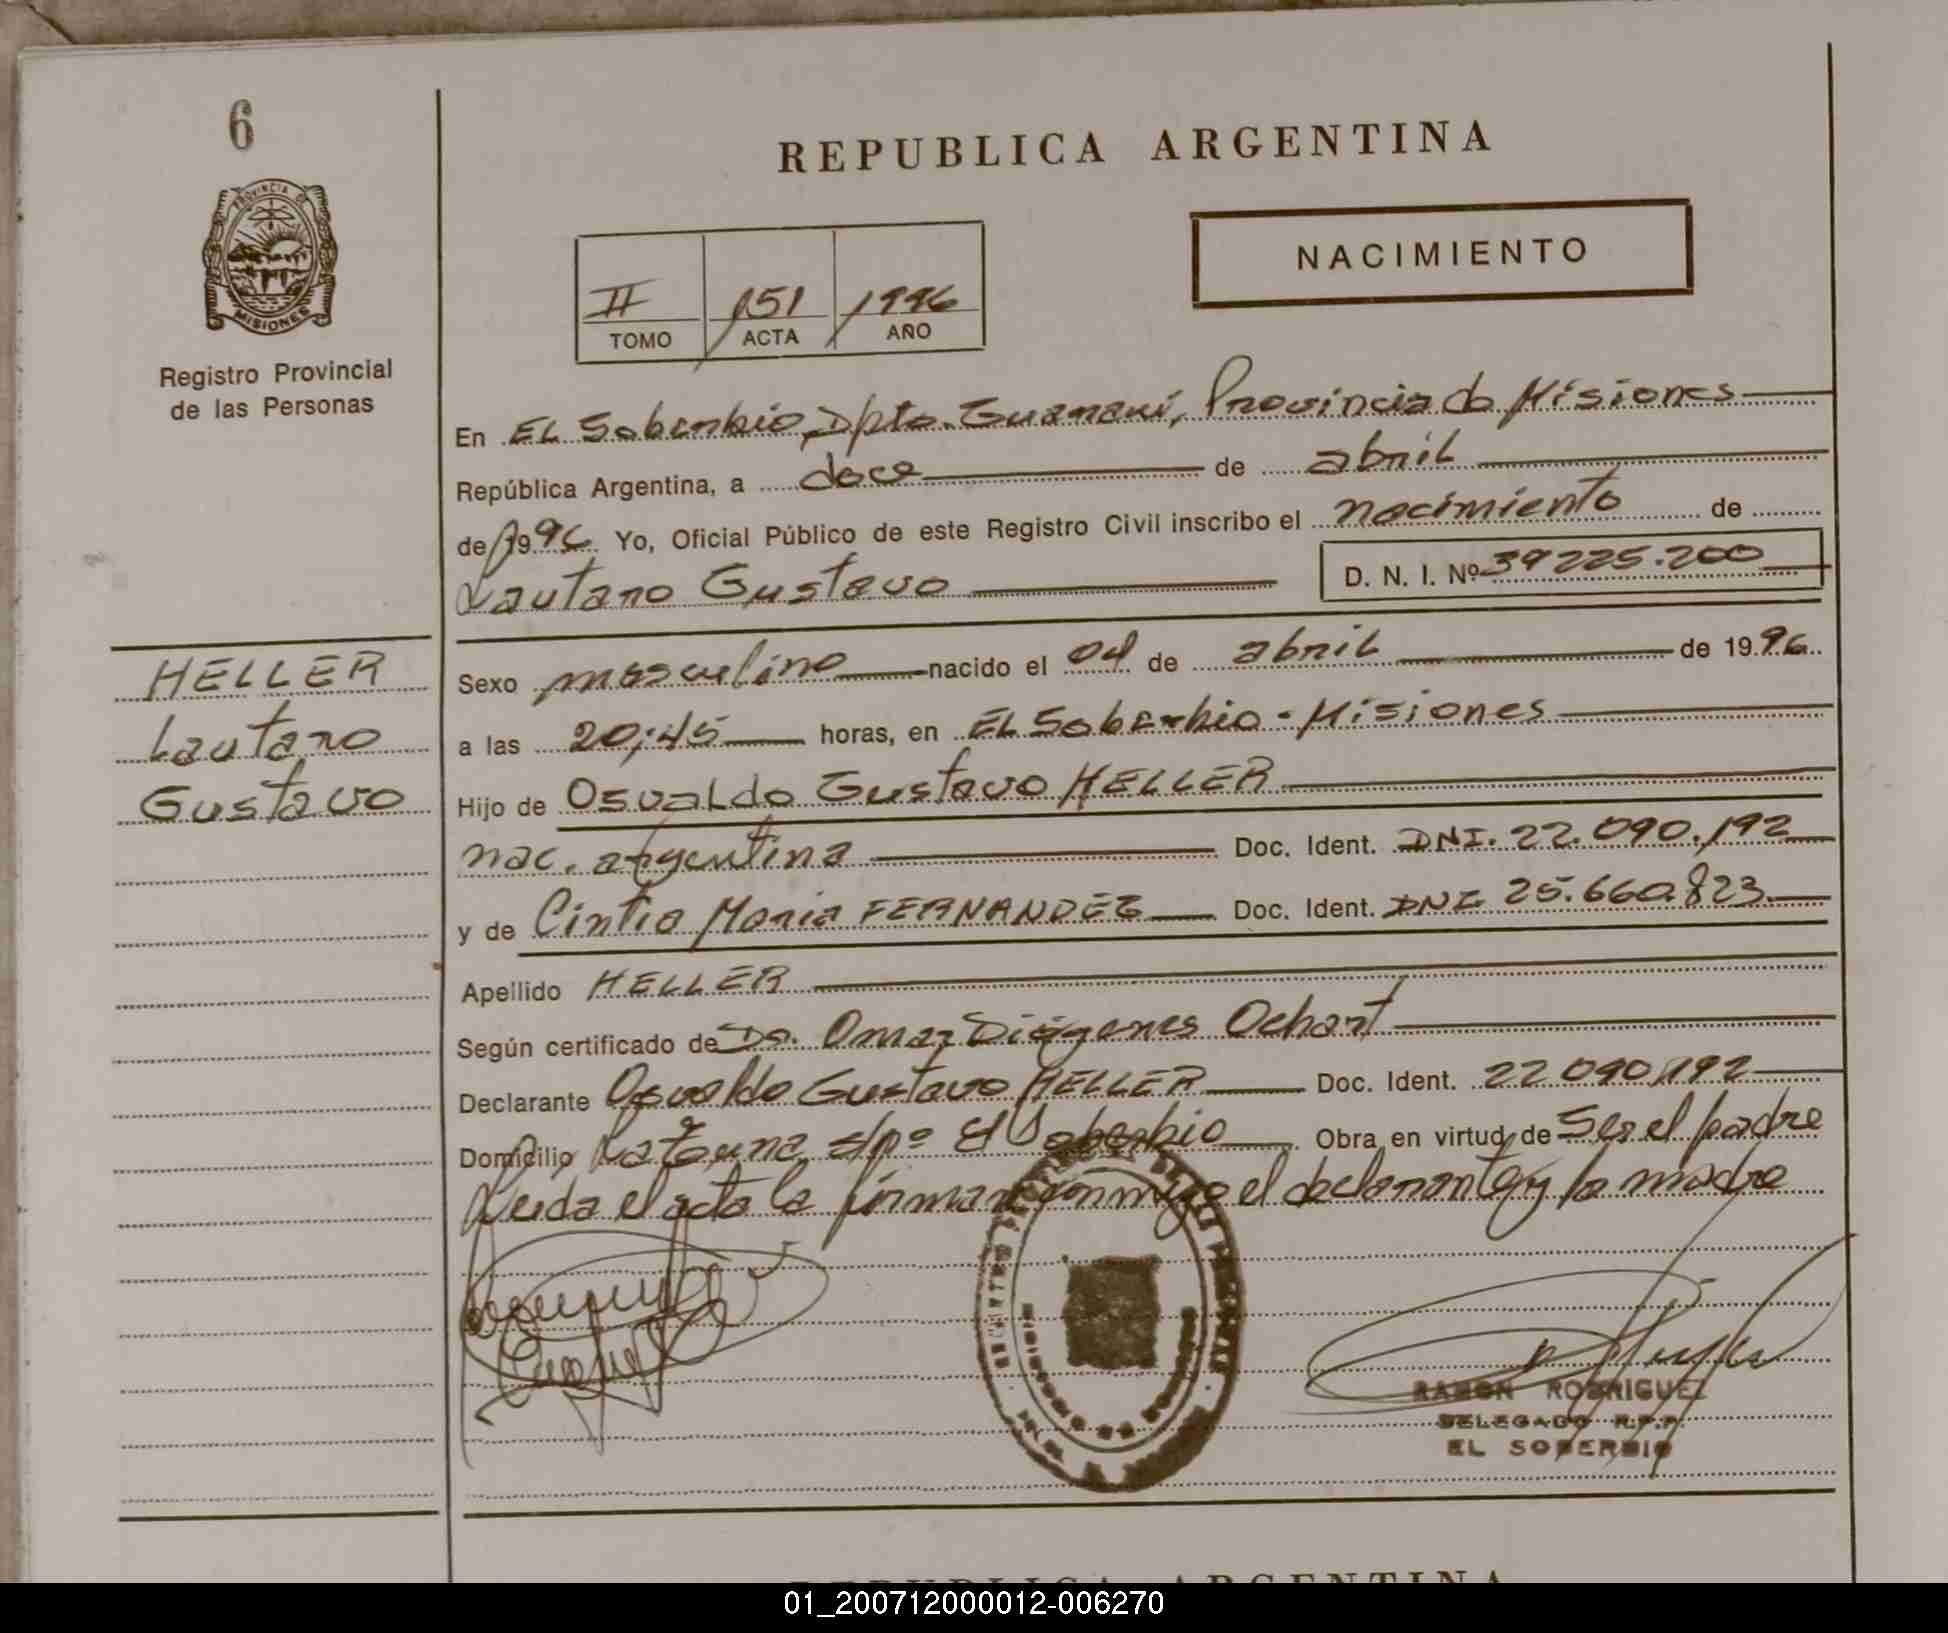 6
REPUBLICA ARGENTINA
PROVINCIA DE
MISIONES
Registro Provincial
de las Personas
NACIMIENTO
II 151 1996
TOMO ACTA AÑO
En El Soberbio, Dpto. Guaraní, Provincia de Misiones
República Argentina, a doce de abril
de 1996 Yo, Oficial Público de este Registro Civil inscribo el nacimiento de
Lautaro Gustavo D. N. I. Nº 39225.200
HELLER
Lautaro
Gustavo
Sexo masculino nacido el 04 de abril de 1996
a las 20:45 horas, en El Soberbio - Misiones
Hijo de Osvaldo Gustavo HELLER
nac. argentina Doc. Ident. DNI. 22.090.192
y de Cintia Maria FERNANDEZ Doc. Ident. DNI 25.660.823
Apellido HELLER
Según certificado de Dr. Omar Diógenes Ochart
Declarante Osvaldo Gustavo HELLER Doc. Ident. 22090192
Domicilio s/nº El Soberbio Obra en virtud de Ser el padre
Leida el acta la firman conmigo el declarante y la madre
RAMON RODRIGUEZ
DELEGADO R.P.P.
EL SOBERBIO
REPUBLICA ARGENTINA
01_200712000012-006270